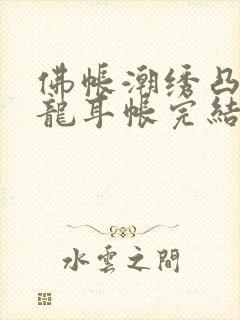 佛帳潮绣凸
龍耳帐完結
水雲之間